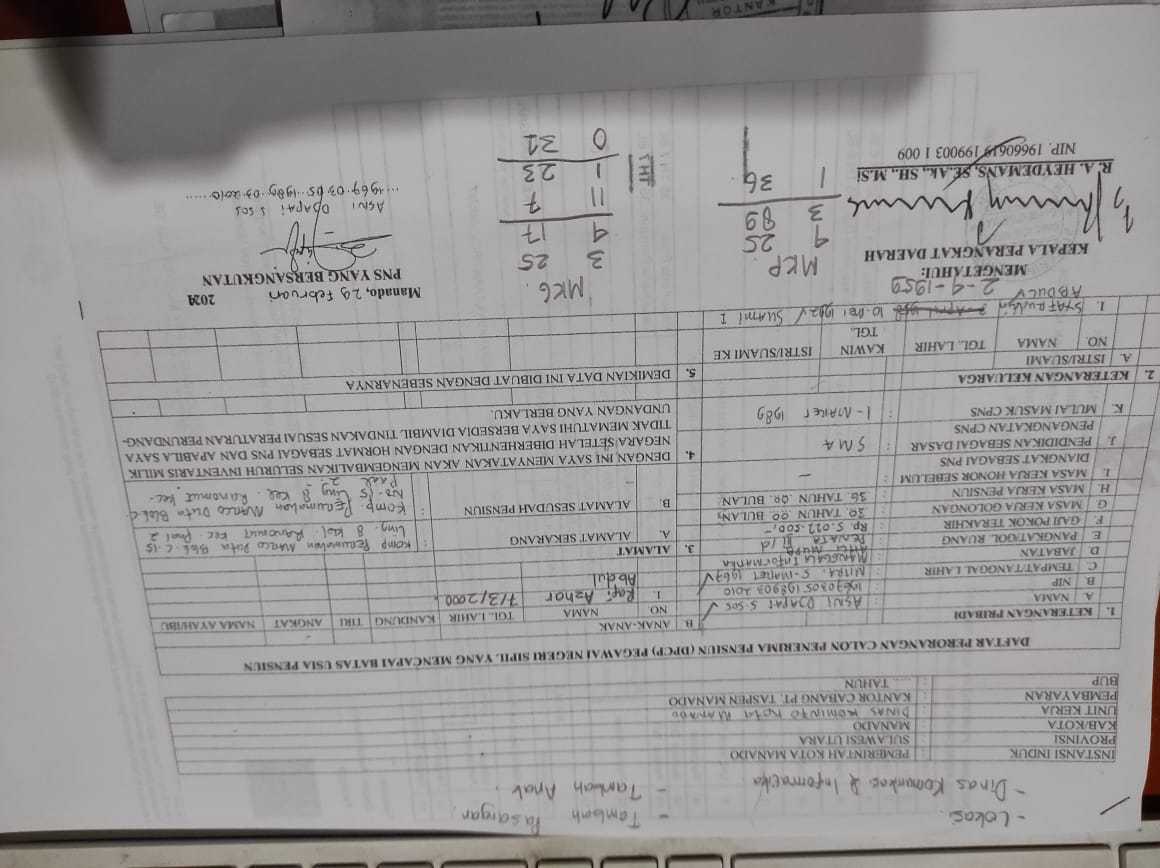 - Lokasi
- Dinas Komunikasi & Informatika
- Tambah Pasangan
- Tambah Anak
INSTANSI INDUK : PEMERINTAH KOTA MANADO
PROVINSI : SULAWESI UTARA
KAB/KOTA : MANADO
UNIT KERJA : DINAS KOMINFO KOTA MANADO
PEMBAYARAN : KANTOR CABANG PT. TASPEN MANADO
BUP : .... TAHUN
DAFTAR PERORANGAN CALON PENERIMA PENSIUN (DPCP) PEGAWAI NEGERI SIPIL YANG MENCAPAI BATAS USIA PENSIUN
1. KETERANGAN PRIBADI
A NAMA : ASNI DJAPAI S.SOS
B. NIP : 196703051989032010
C TEMPAT/TANGGAL LAHIR : MITRA. 5-MARET 1967
D. JABATAN : MANGGALA INFORMATIKA
AHLI MUDA
E PANGKAT/GOL. RUANG : PENATA III/d
F. GAJI POKOK TERAKHIR : Rp. 5.022.500,-
G MASA KERJA GOLONGAN : 32. TAHUN 00. BULAN
H. MASA KERJA PENSIUN : 36. TAHUN 00. BULAN
I. MASA KERJA HONOR SEBELUM DIANGKAT SEBAGAI PNS : -
J. PENDIDIKAN SEBAGAI DASAR PENGANGKATAN CPNS : SMA
K. MULAI MASUK CPNS : 1-MARET 1989
2. KETERANGAN KELUARGA
A. ISTRI/SUAMI
NO. NAMA TGL. LAHIR TGL. KAWIN ISTRI/SUAMI KE
1. SYAFRUDDIN ABDUL 2-4-1959 10. Mei 1992 SUAMI I
B. ANAK-ANAK
NO NAMA TGL. LAHIR KANDUNG TIRI ANGKAT NAMA AYAH/IBU
1. Rafi Azhar Abdul 7/3/2000
3. ALAMAT
A. ALAMAT SEKARANG : Komp Perumahan Marco Data Blok C.15
Ling. 8 Kel Ranomut Kec Paal 2
B ALAMAT SESUDAH PENSIUN : Komp Perumahan Marco Data Blok C
No. 15 Ling 8 Kel. Ranomut Kec.
Paal 2
4. DENGAN INI SAYA MENYATAKAN AKAN MENGEMBALIKAN SELURUH INVENTARIS MILIK
NEGARA SETELAH DIBERHENTIKAN DENGAN HORMAT SEBAGAI PNS DAN APABILA SAYA
TIDAK MEMATUHI SAYA BERSEDIA DIAMBIL TINDAKAN SESUAI PERATURAN PERUNDANG-
UNDANGAN YANG BERLAKU.
5. DEMIKIAN DATA INI DIBUAT DENGAN SEBENARNYA
MENGETAHUI:
KEPALA PERANGKAT DAERAH
R. A. HEYDEMANS, SE.Ak., SH., M.Si
NIP. 19660619 199003 1 009
MKP
9 25
3 89
1 36
MKG
3 25
9 17
11 7
1 23
0 32
THT
Manado, 29 Februari 2024
PNS YANG BERSANGKUTAN
ASNI DJAPAI S.SOS
1967.03.05.1989.03.2010
KANTOR